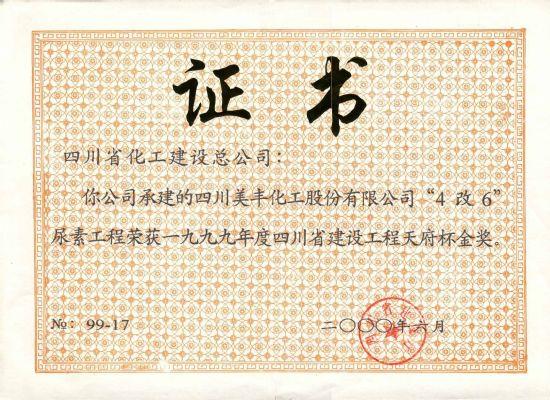 证书
四川省化工建设总公司：
你公司承建的四川美丰化工股份有限公司“4 改 6”
尿素工程荣获一九九九年度四川省建设工程天府杯金奖。
№：99-17
二〇〇〇年六月